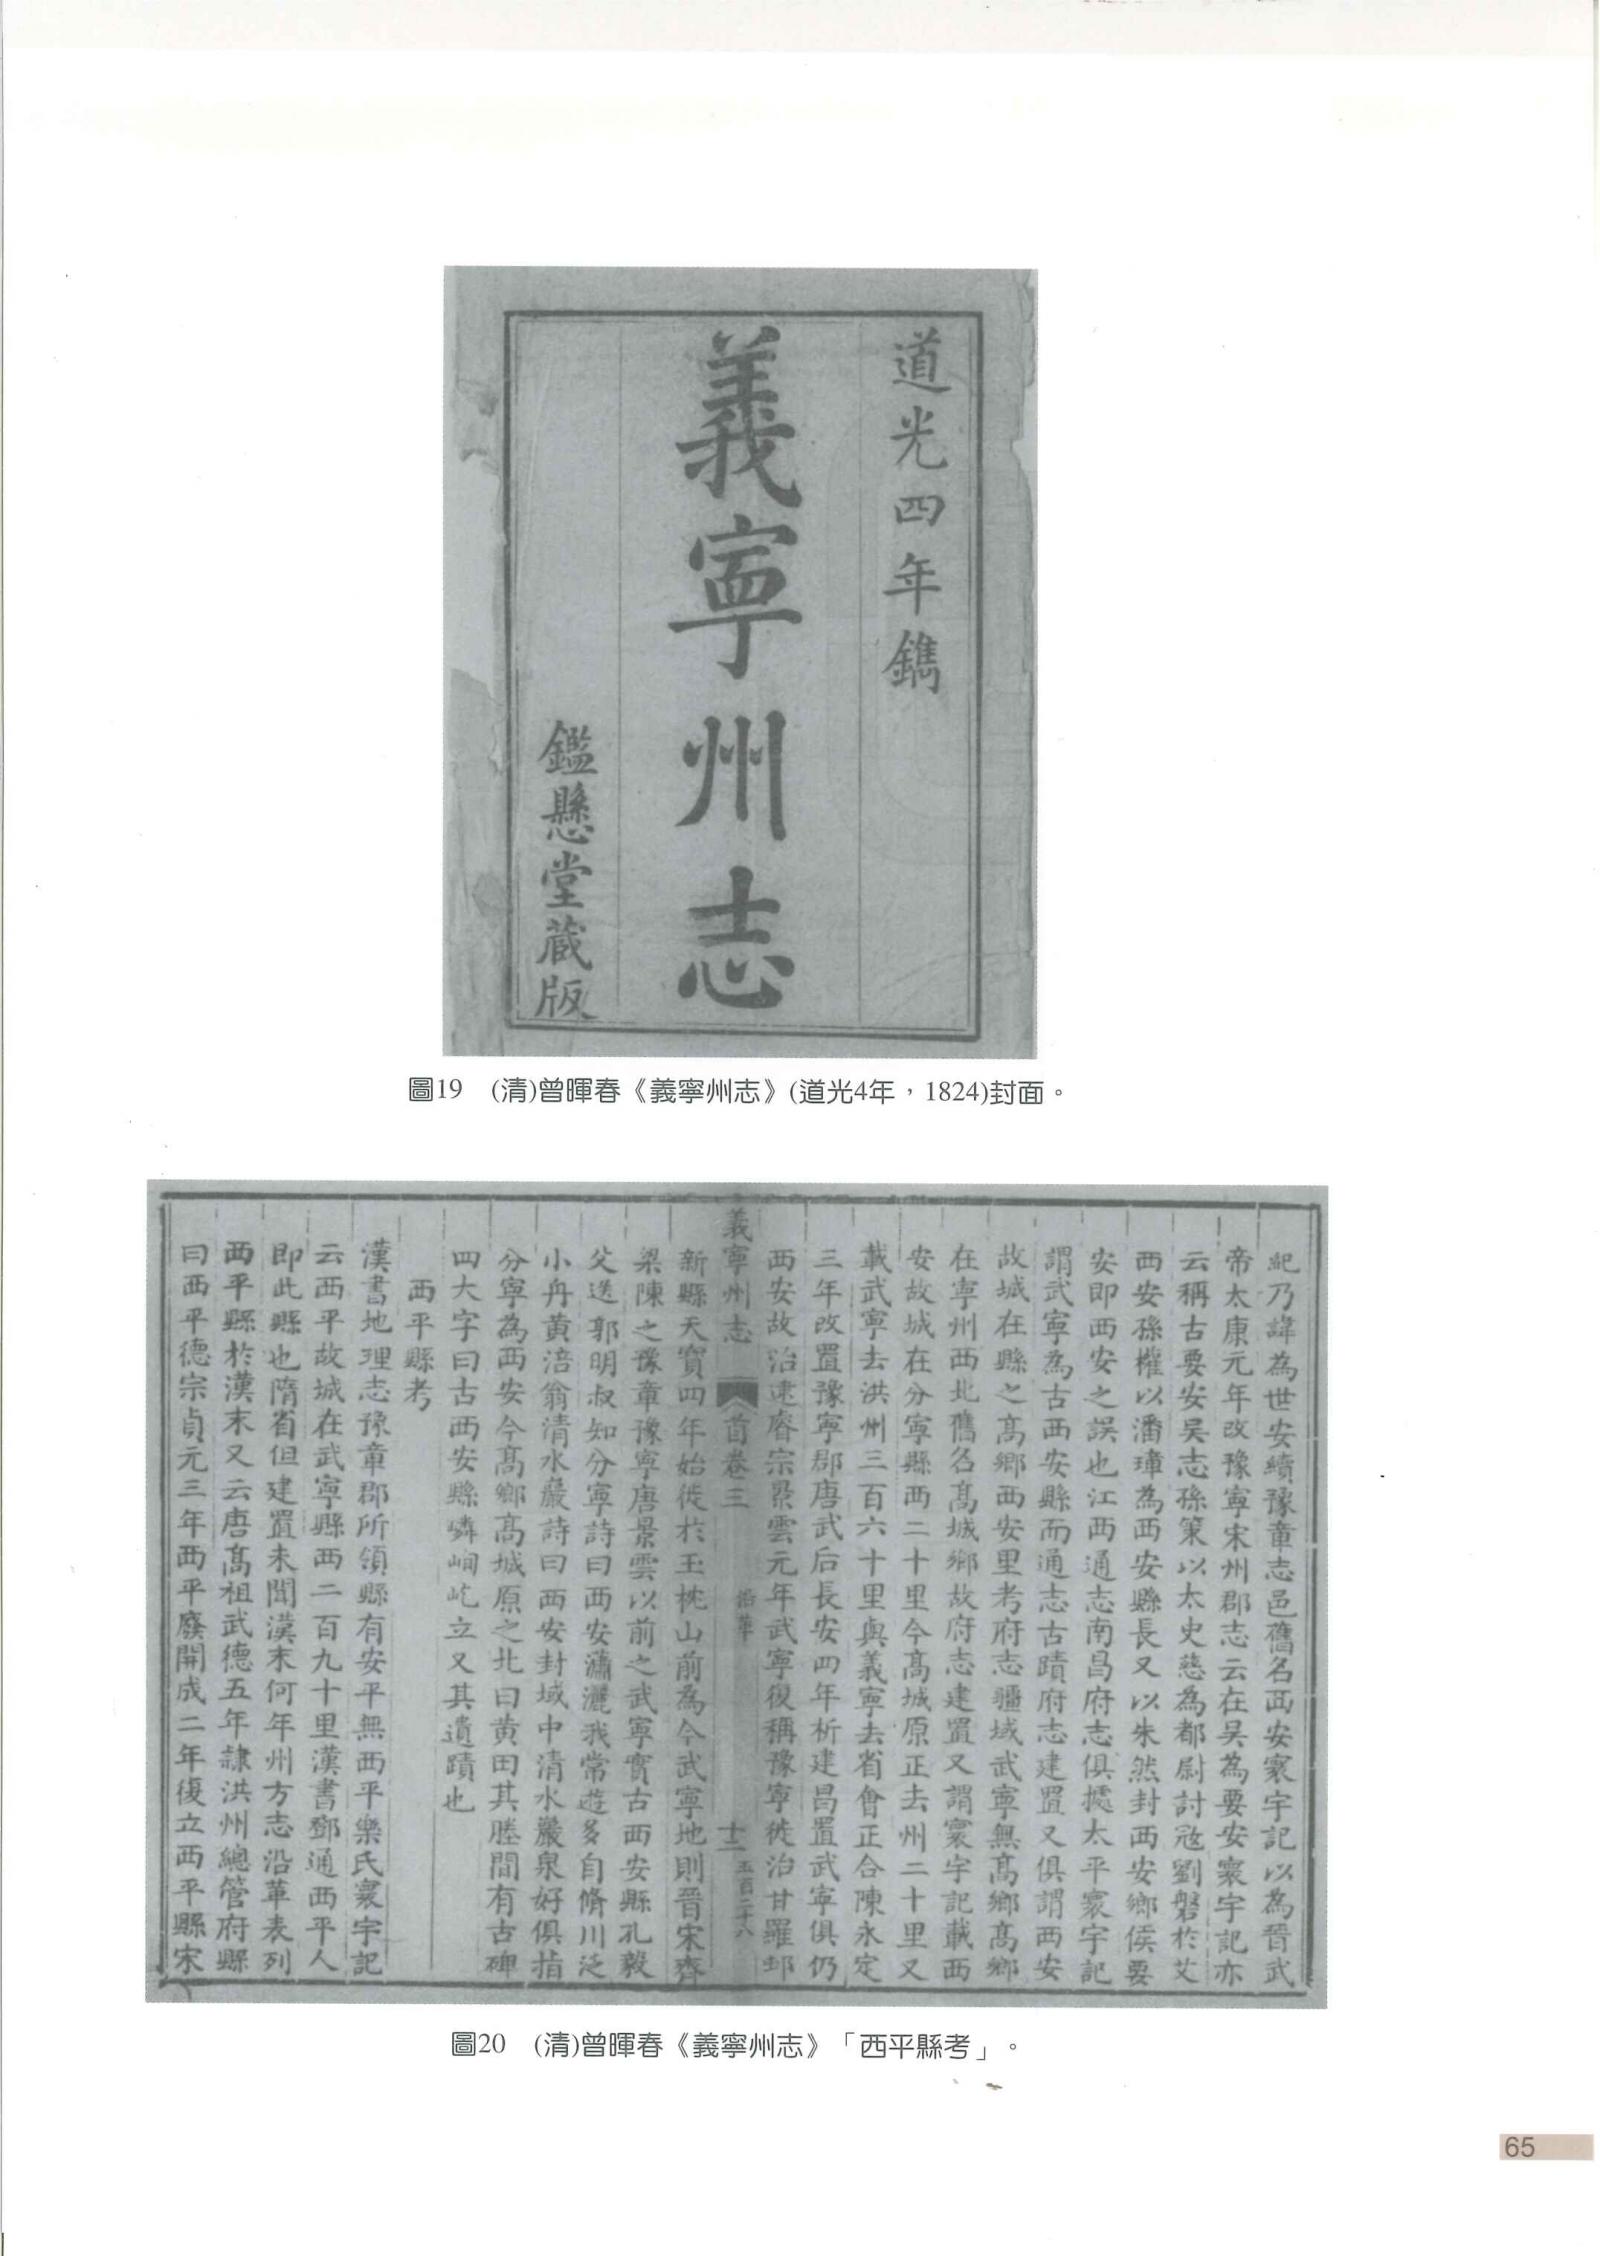 道光四年鐫
義寧州志
鑑懸堂藏版
圖19 (清)曾暉春《義寧州志》(道光4年，1824)封面。
紀乃諱為世安續豫章志邑舊名西安寰宇記以為晉武
帝太康元年改豫寧宋州郡志云在吳為要安寰宇記亦
云稱古要安吳志孫策以太史慈為都尉討寇劉磐於艾
西安孫權以潘璋為西安縣長又以朱然封西安鄉侯要
安即西安之誤也江西通志南昌府志俱據太平寰宇記
謂武寧為古西安縣而通志古蹟府志建置又俱謂西安
故城在縣之高鄉西安里考府志疆域武寧無高鄉高鄉
在寧州西北舊名高城鄉故府志建置又謂寰宇記載西
安故城在分寧縣西二十里今高城原正去州二十里又
載武寧去洪州三百六十里與義寧去省會正合陳永定
三年改置豫寧郡唐武后長安四年析建昌置武寧俱仍
西安故治逮睿宗景雲元年武寧復稱豫寧徙治甘羅邨
義寧州志 首卷三 沿革 十二 五百二十八
新縣天寶四年始徙於玉枕山前為今武寧地則晉宋齊
梁陳之豫章豫寧唐景雲以前之武寧實古西安縣孔毅
父送郭明叔知分寧詩曰西安瀟灑我常遊多自脩川泛
小舟黃涪翁清水巖詩曰西安封域中清水巖泉好俱指
分寧為西安今高鄉高城原之北曰黃田其塍間有古碑
四大字曰古西安縣嶙峋屹立又其遺蹟也
西平縣考
漢書地理志豫章郡所領縣有安平無西平樂氏寰宇記
云西平故城在武寧縣西二百九十里漢書鄧通西平人
即此縣也隋省但建置未聞漢末何年州方志沿革表列
西平縣於漢末又云唐高祖武德五年隸洪州總管府縣
曰西平德宗貞元三年西平廢開成二年復立西平縣宋
圖20 (清)曾暉春《義寧州志》「西平縣考」。
65